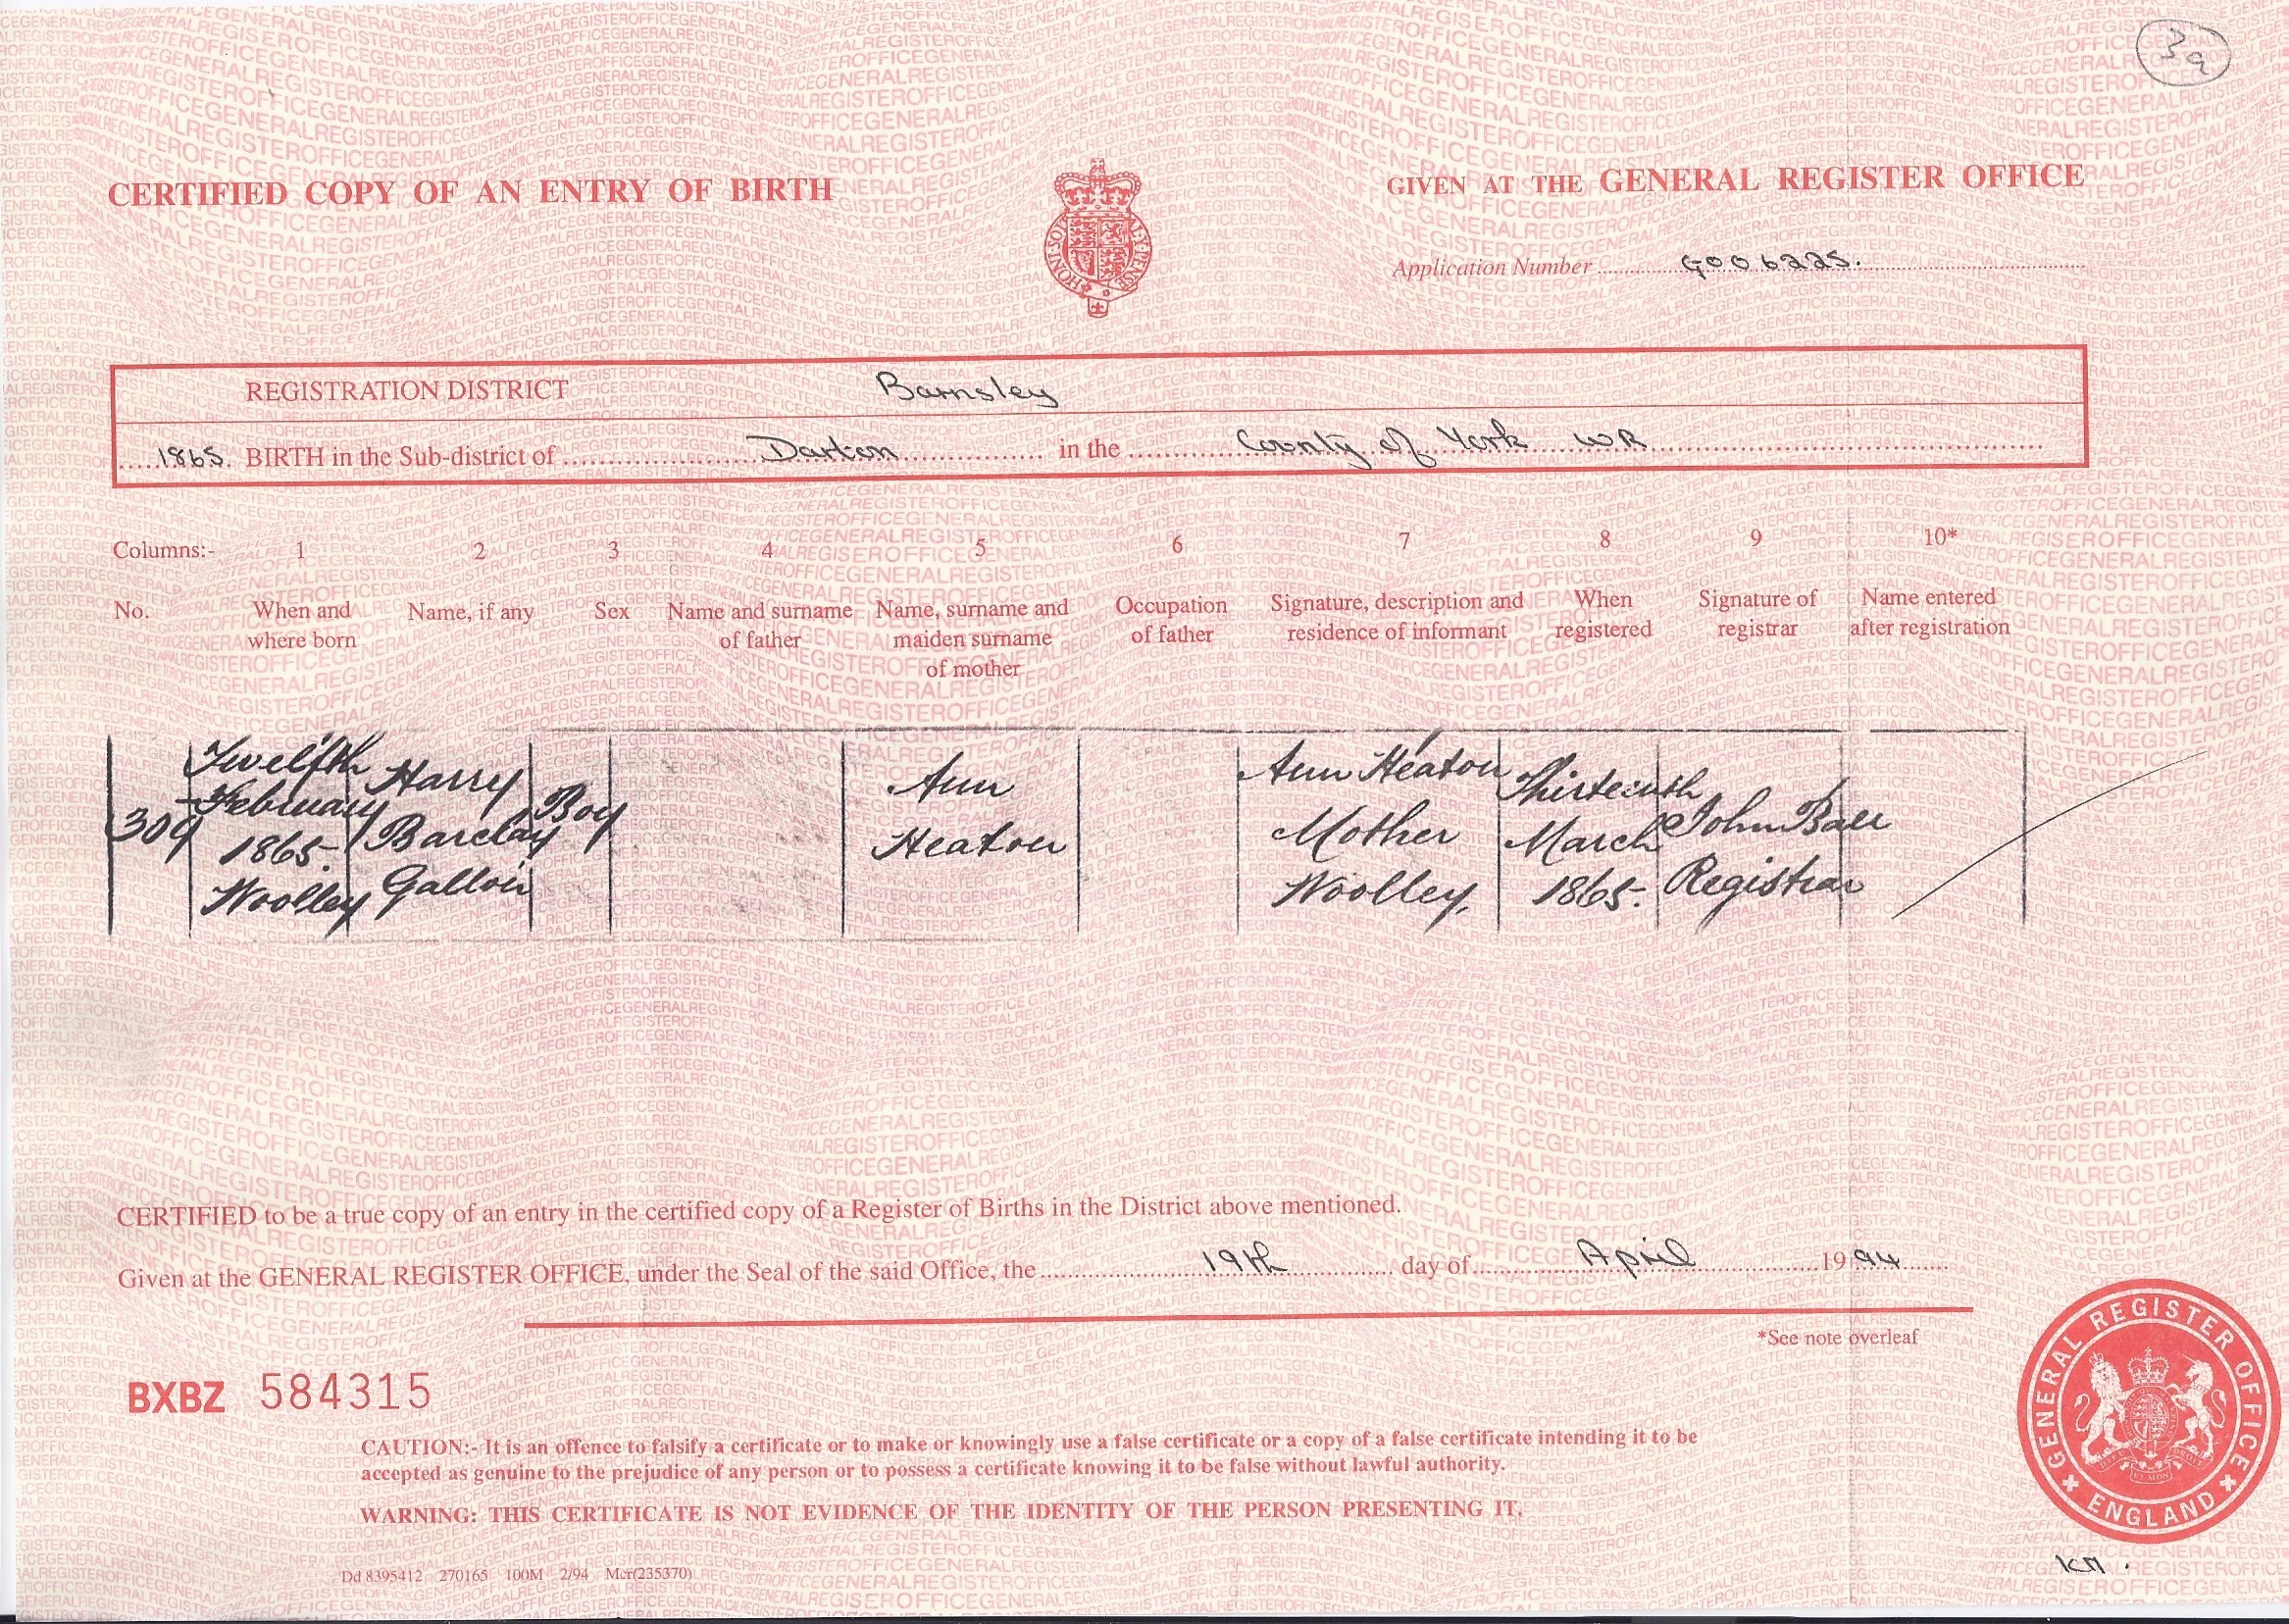 3a
CERTIFIED COPY OF AN ENTRY OF BIRTH
GIVEN AT THE GENERAL REGISTER OFFICE
Application Number G006225.
REGISTRATION DISTRICT Barnsley
1865. BIRTH in the Sub-district of Darton in the County of York WR
Columns:- 1 2 3 4 5 6 7 8 9 10*
No. When and where born Name, if any Sex Name and surname of father Name, surname and maiden surname of mother Occupation of father Signature, description and residence of informant When registered Signature of registrar Name entered after registration
309
Twelfth
February
1865.
Woolley
Harry
Barclay
Boy
Ann
Heaton
Ann Heaton
Mother
Woolley,
Thirteenth
March
1865.
John
Registrar
CERTIFIED to be a true copy of an entry in the certified copy of a Register of Births in the District above mentioned.
Given at the GENERAL REGISTER OFFICE, under the Seal of the said Office, the 19th day of April 1994
*See note overleaf
BXBZ 584315
CAUTION:- It is an offence to falsify a certificate or to make or knowingly use a false certificate or a copy of a false certificate intending it to be
accepted as genuine to the prejudice of any person or to possess a certificate knowing it to be false without lawful authority.
WARNING: THIS CERTIFICATE IS NOT EVIDENCE OF THE IDENTITY OF THE PERSON PRESENTING IT.
Dd 8395412 270165 100M 2/94 Mcr(235370)
GENERAL REGISTER OFFICE
ENGLAND
KM.